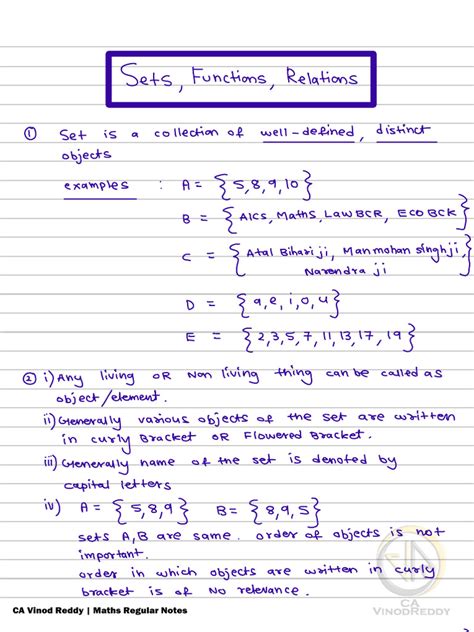 Sets, Functions, Relations
① Set is a collection of well-defined, distinct
objects
examples : A = {5,8,9,10}
B = {AICS, Maths, Law BCR, Eco BCK}
C = {Atal Bihari ji, Manmohan Singh ji,
Narendra ji}
D = {a, e, i, o, u}
E = {2,3,5,7,11,13,17,19}
② i) Any living OR Non living thing can be called as
object/element.
ii) Generally various objects of the set are written
in curly Bracket OR Flowered Bracket.
iii) Generally name of the set is denoted by
capital letters
iv) A = {5,8,9} B = {8,9,5}
sets A,B are same. order of objects is not
important.
order in which objects are written in curly
bracket is of No relevance.
CA
VINODREDDY
CA Vinod Reddy | Maths Regular Notes